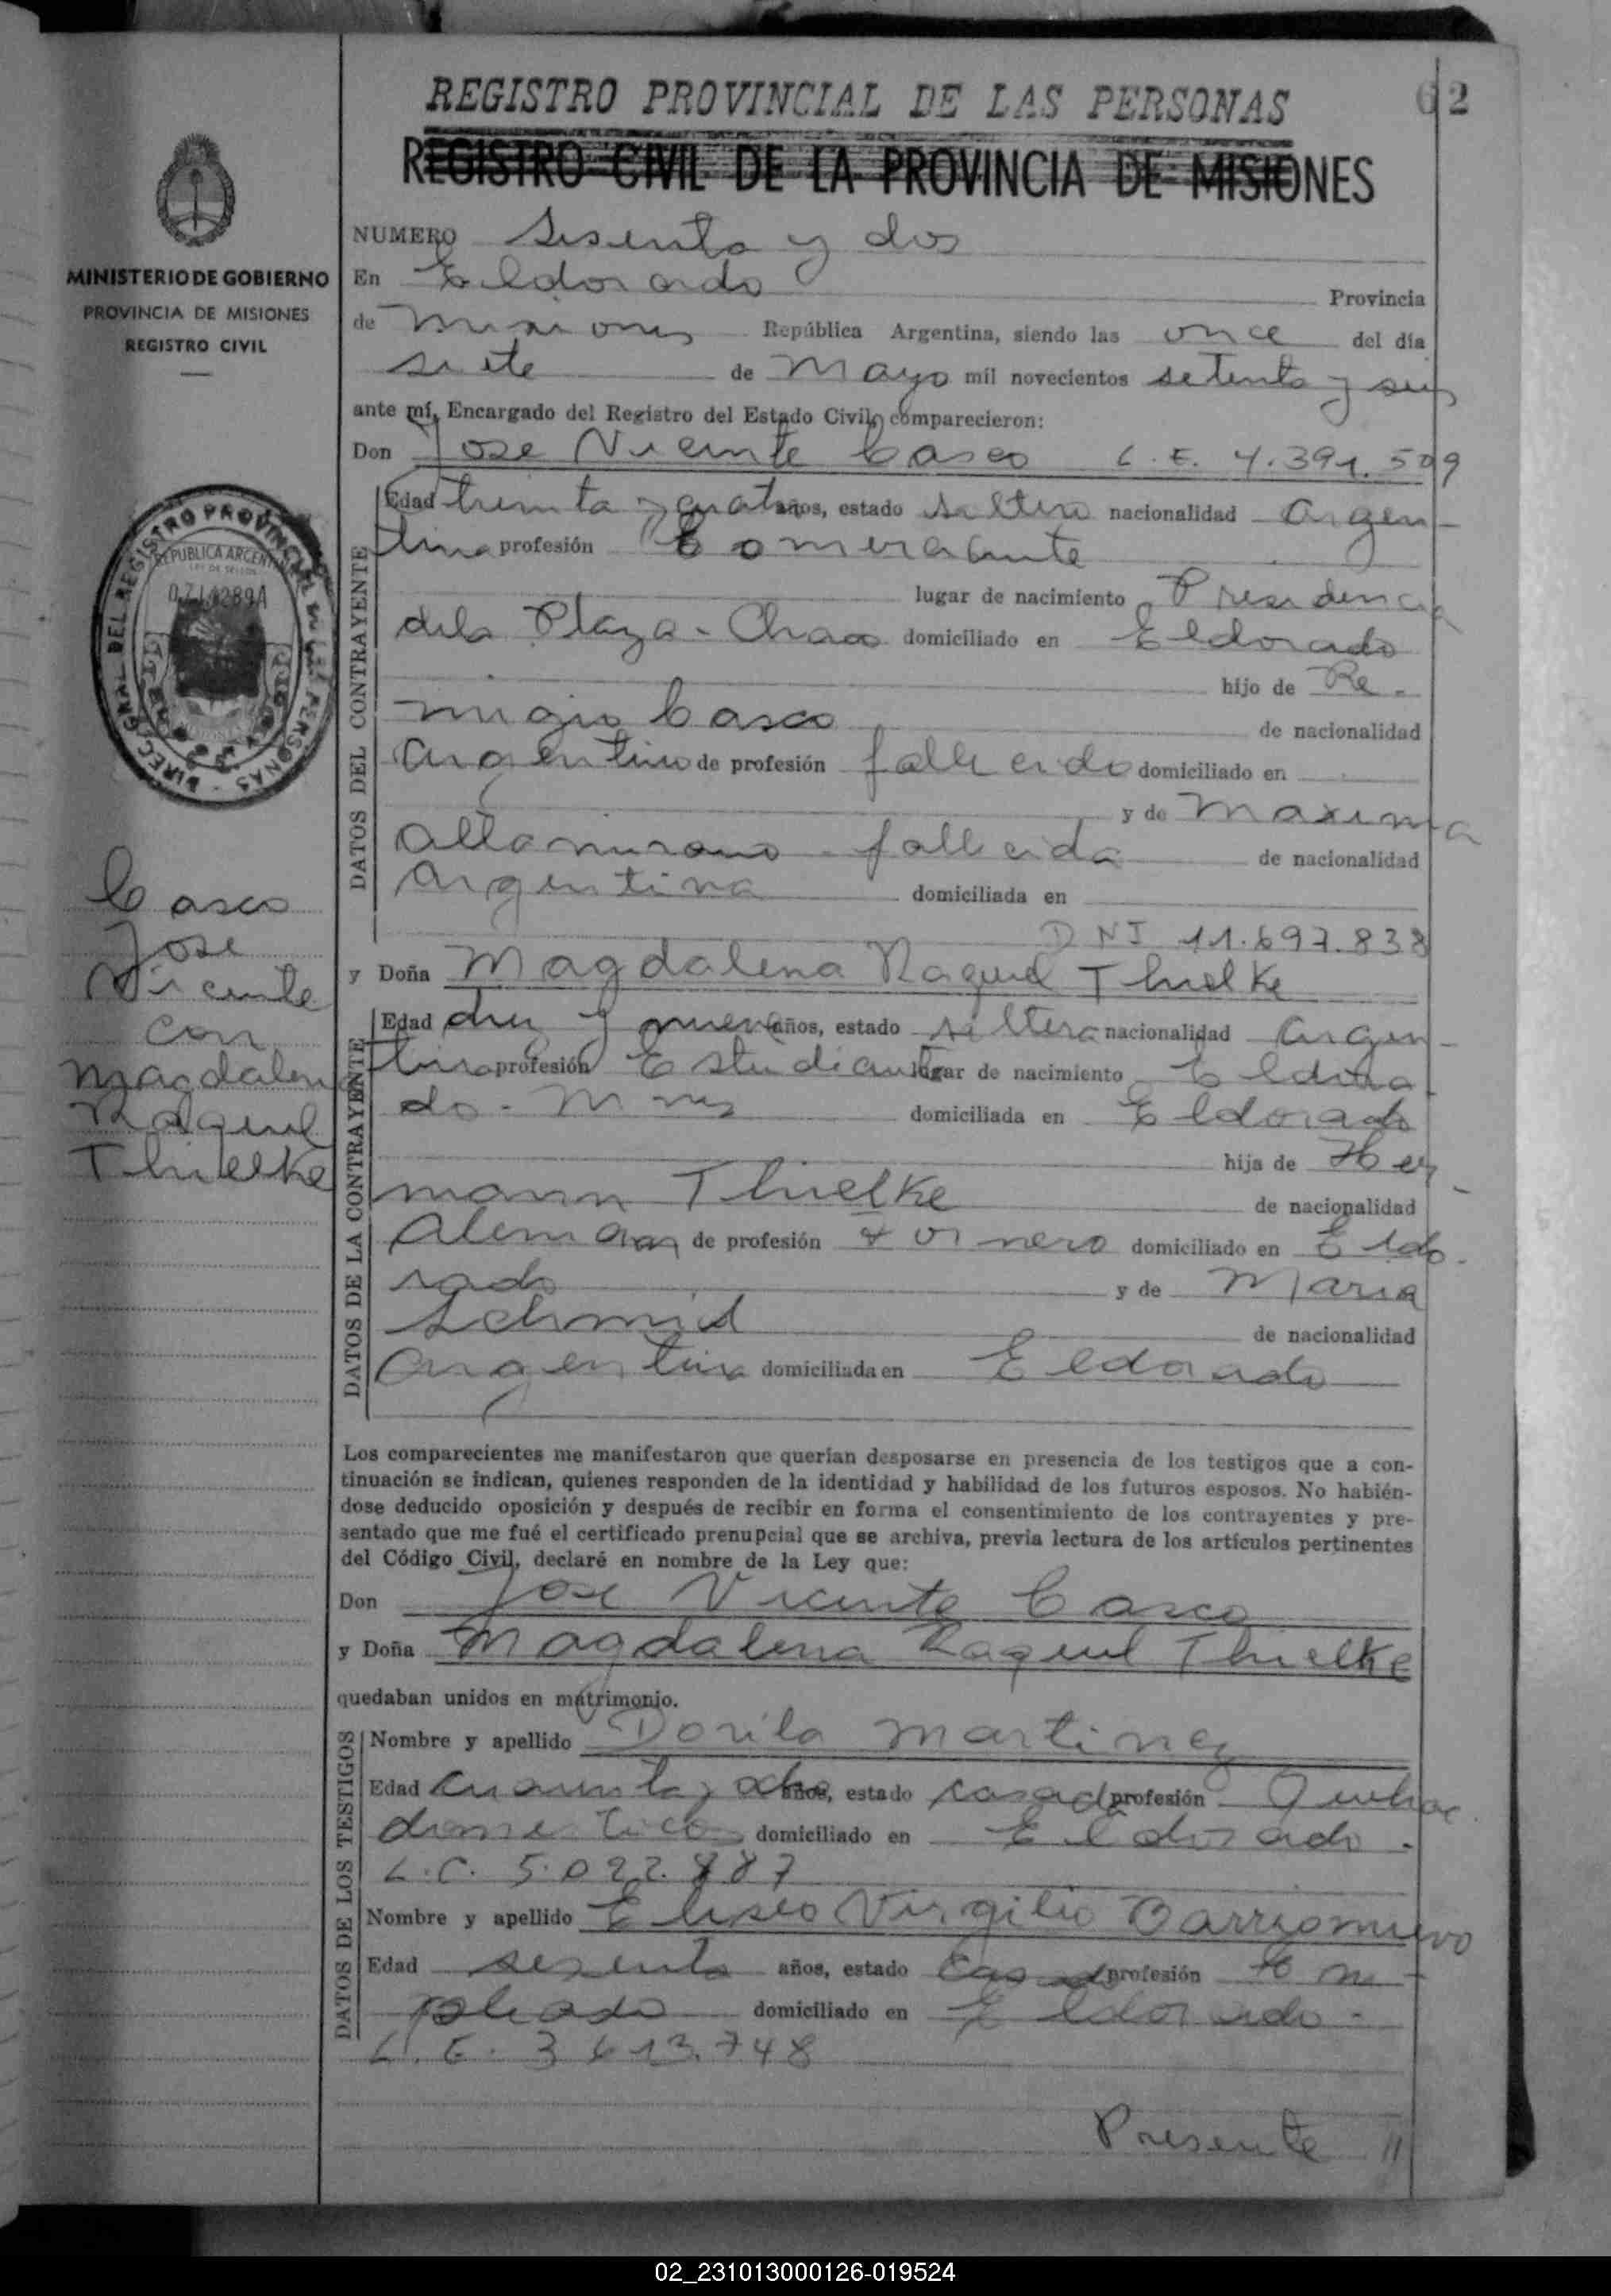 REGISTRO PROVINCIAL DE LAS PERSONAS
62
REGISTRO CIVIL DE LA PROVINCIA DE MISIONES
MINISTERIO DE GOBIERNO
PROVINCIA DE MISIONES
REGISTRO CIVIL
NUMERO Sesenta y dos
En Eldorado Provincia
de Misiones República Argentina, siendo las once del día
siete de Mayo mil novecientos setenta y seis
ante mí, Encargado del Registro del Estado Civil, comparecieron:
Don Jose Vicente Casco L.E. 7.391.509
DATOS DEL CONTRAYENTE
Edad treinta y cuatro años, estado soltero nacionalidad Argen-
tina profesión Comerciante
lugar de nacimiento Presidencia
dela Plaza - Chaco domiciliado en Eldorado
hijo de Re-
migio Casco de nacionalidad
Argentino de profesión fallecido domiciliado en
y de Maxima
Altamirano - fallecida de nacionalidad
Argentina domiciliada en
DNI 11.697.838
y Doña Magdalena Raquel Thielke
DATOS DE LA CONTRAYENTE
Edad diez y nueve años, estado soltera nacionalidad Argen-
tina profesión Estudiante lugar de nacimiento Eldora
do - Mnes domiciliada en Eldorado
hija de Her
mann Thielke de nacionalidad
Aleman de profesión tornero domiciliado en Eldo-
rado y de Maria
Schmid de nacionalidad
Argentina domiciliada en Eldorado
DIREC. GRAL. DEL REGISTRO PROVINCIAL DE LAS PERSONAS
REPUBLICA ARGENTINA
LEY DE SELLOS
Casco
Jose
Vicente
con
Magdalena
Raquel
Thielke
Los comparecientes me manifestaron que querían desposarse en presencia de los testigos que a con-
tinuación se indican, quienes responden de la identidad y habilidad de los futuros esposos. No habién-
dose deducido oposición y después de recibir en forma el consentimiento de los contrayentes y pre-
sentado que me fué el certificado prenupcial que se archiva, previa lectura de los artículos pertinentes
del Código Civil, declaré en nombre de la Ley que:
Don Jose Vicente Casco
y Doña Magdalena Raquel Thielke
quedaban unidos en matrimonio.
DATOS DE LOS TESTIGOS
Nombre y apellido Dorila Martinez
Edad cuarenta y ocho años, estado casada profesión Quehac.
domesticos domiciliado en Eldorado.
L.C. 5.022.887
Nombre y apellido Eliseo Virgilio Barrionuevo
Edad sesenta años, estado Casado profesión Em-
pleado domiciliado en Eldorado.
L.E. 3613.748
Presente //
02_231013000126-019524